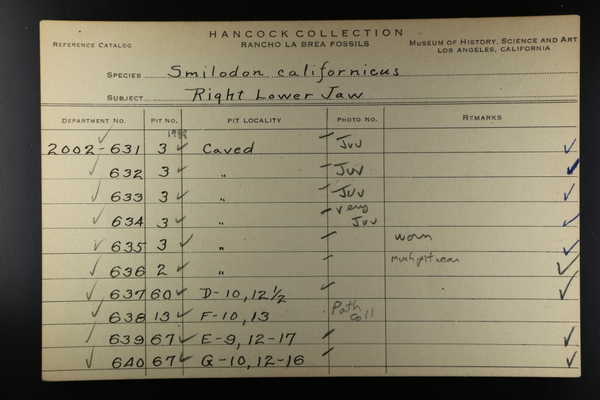 HANCOCK COLLECTION
REFERENCE CATALOG RANCHO LA BREA FOSSILS MUSEUM OF HISTORY, SCIENCE AND ART
LOS ANGELES, CALIFORNIA
SPECIES Smilodon californicus
SUBJECT Right Lower Jaw
DEPARTMENT NO. PIT NO. PIT LOCALITY PHOTO NO. REMARKS
2002-631 3 Caved Juv
632 3 " Juv
633 3 " Juv
634 3 " very Juv
635 3 " worn
636 2 " Much pit wear
637 60 D-10, 12 1/2
638 13 F-10, 13 Path Coll
639 67 E-9, 12-17
640 67 G-10, 12-16